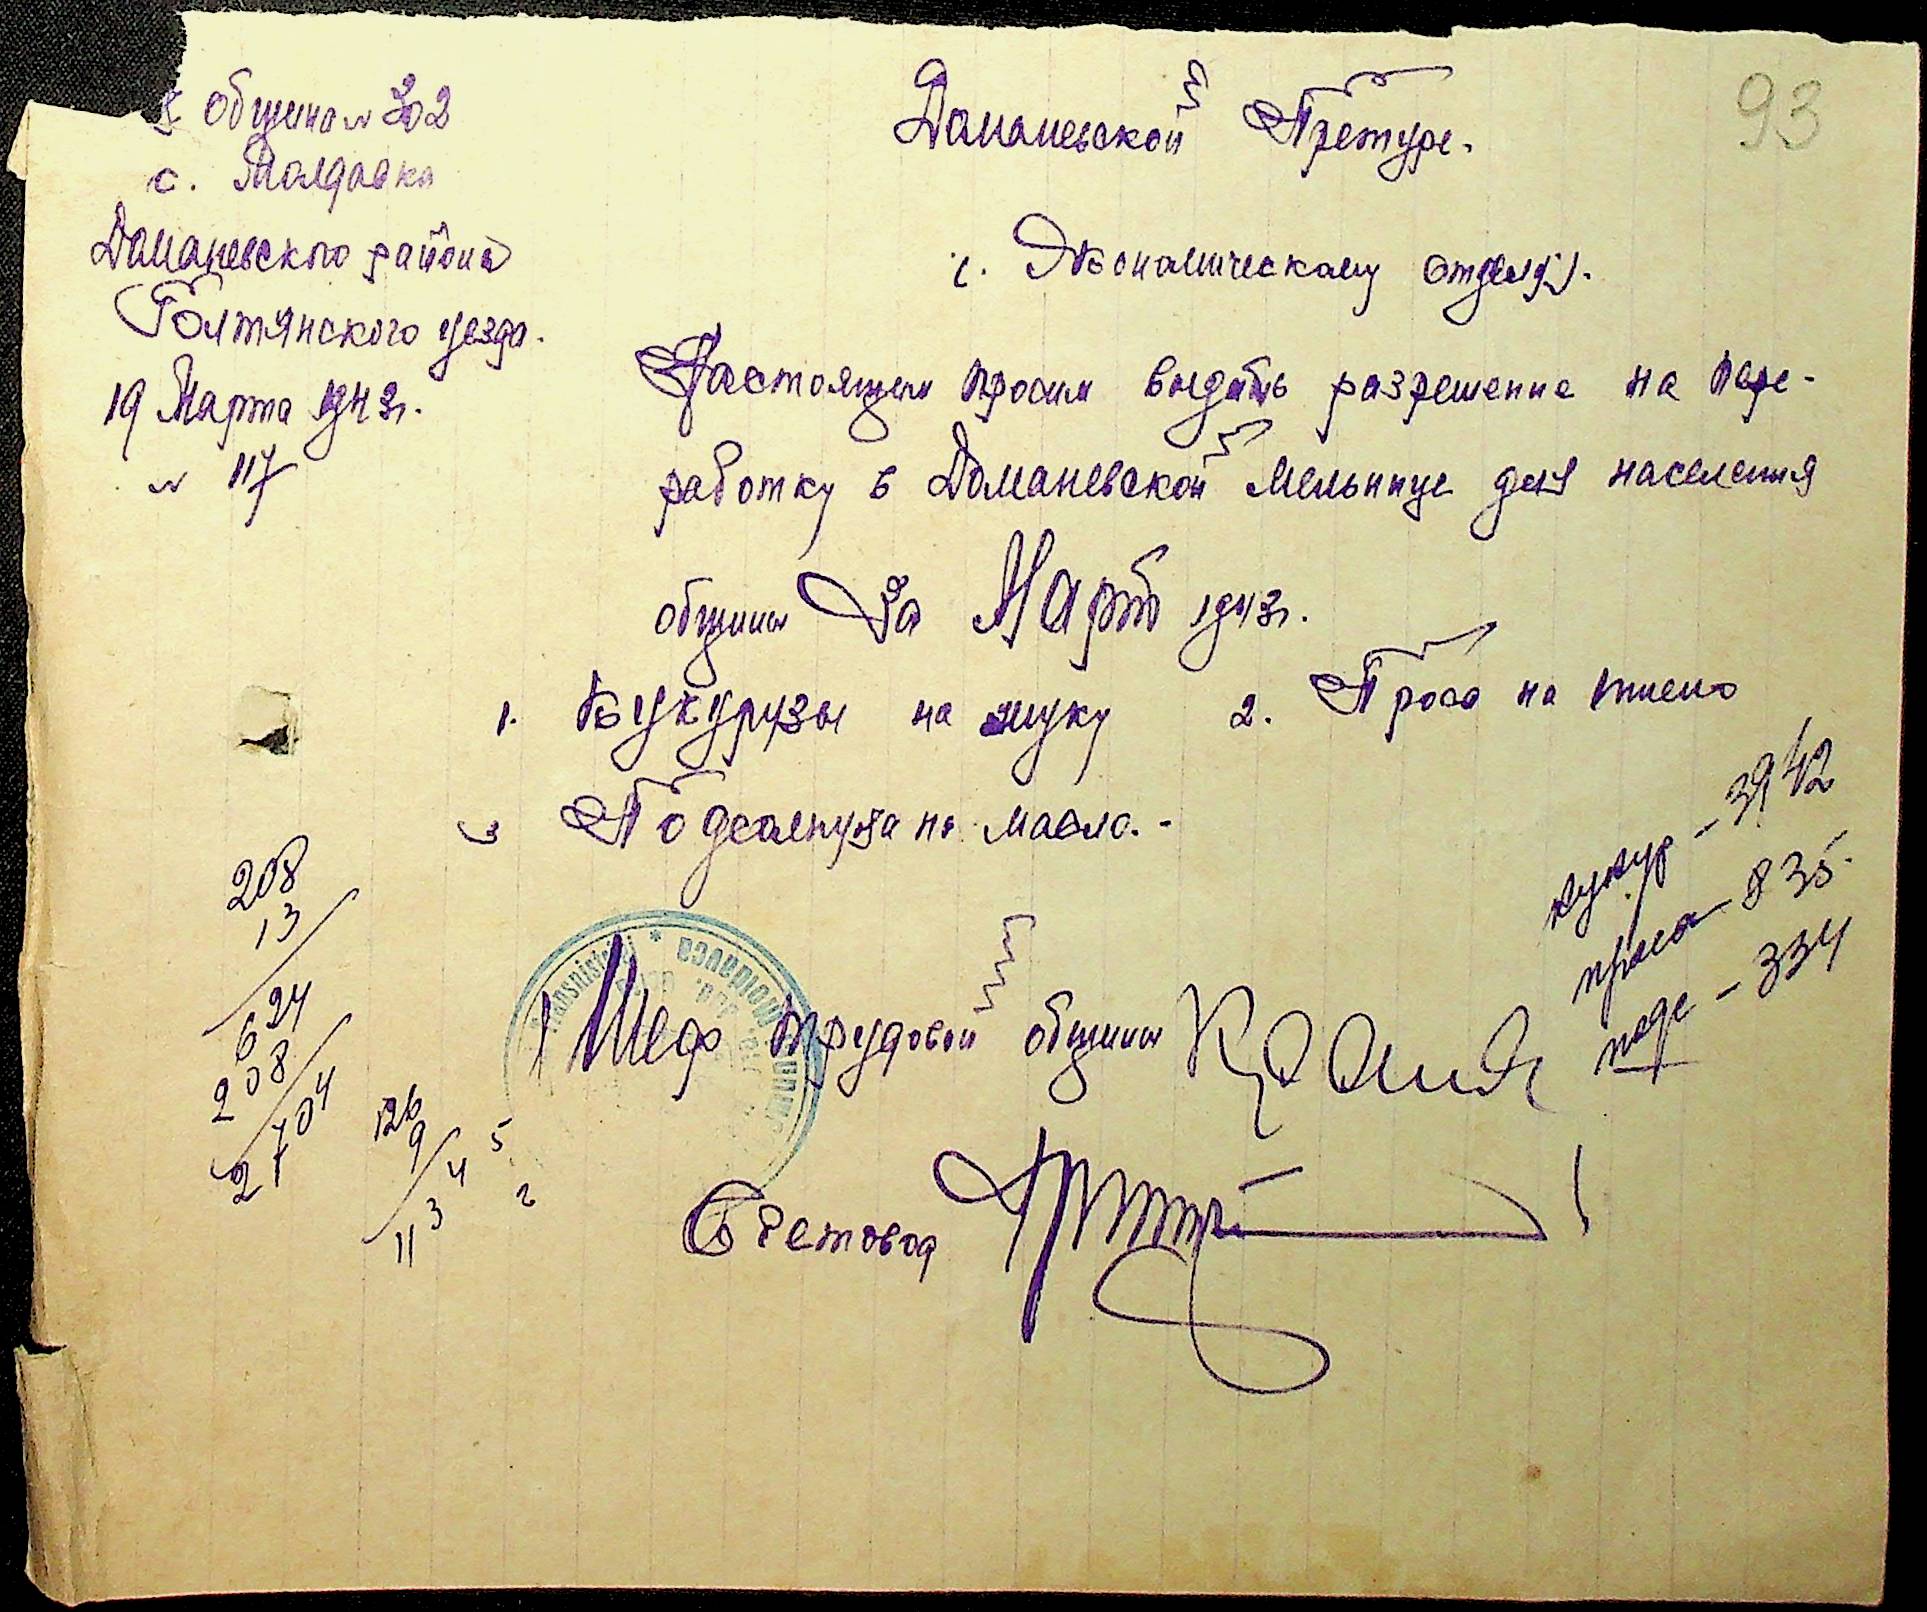 93
Община № 202
с. Молдавка
Доманевского района
Голтянского уезда.
19 Марта 1943 г.
№ 117
Доманевской Претуре.
с. Экономическому отделу.
Настоящим просим выдать разрешение на пере-
работку в Доманевской мельнице для населения
общины За Март 1943 г.
1. Кукурузы на муку 2. Проса на пшено
3 Подсолнуха на масло.-
кукур - 3942
проса - 835
подс - 334
208
13
624
208
2704
126
9
1134
5
2
Шеф трудовой общины
Счетовод